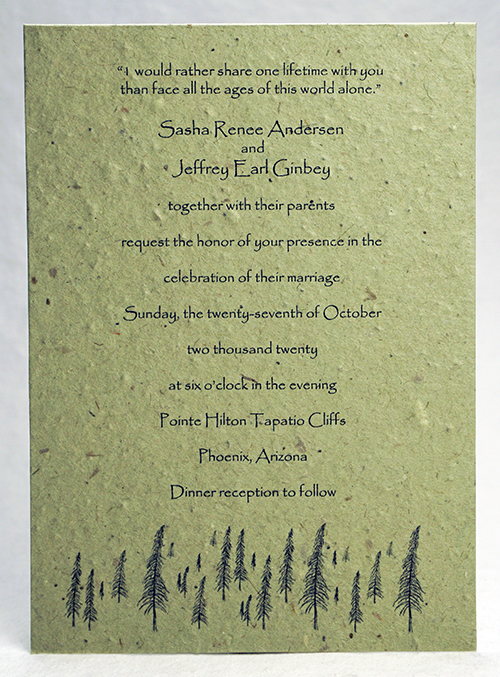 “I would rather share one lifetime with you
than face all the ages of this world alone.”
Sasha Renee Andersen
and
Jeffrey Earl Ginbey
together with their parents
request the honor of your presence in the
celebration of their marriage
Sunday, the twenty-seventh of October
two thousand twenty
at six o’clock in the evening
Pointe Hilton Tapatio Cliffs
Phoenix, Arizona
Dinner reception to follow